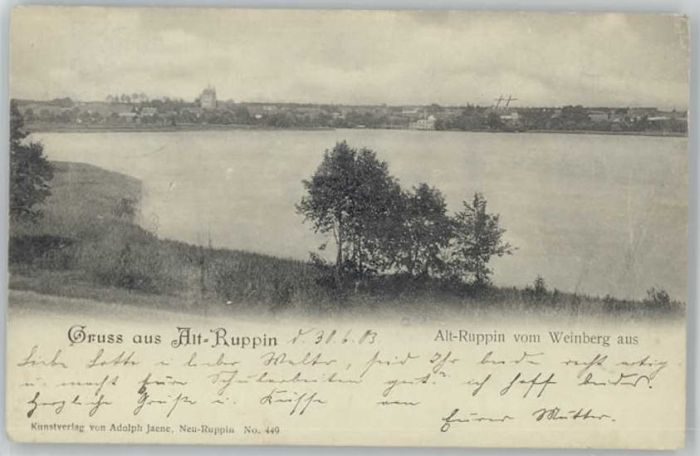 Gruss aus Alt-Ruppin d. 30.6.03 Alt-Ruppin vom Weinberg aus
Liebe Lotte u. lieber Walter, seid Ihr beide recht artig
u. macht Eure Schularbeiten gut? ich hoff beides.
Herzliche Grüße u. Küsse von
Eurer Mutter.
Kunstverlag von Adolph Jaene, Neu-Ruppin No. 449